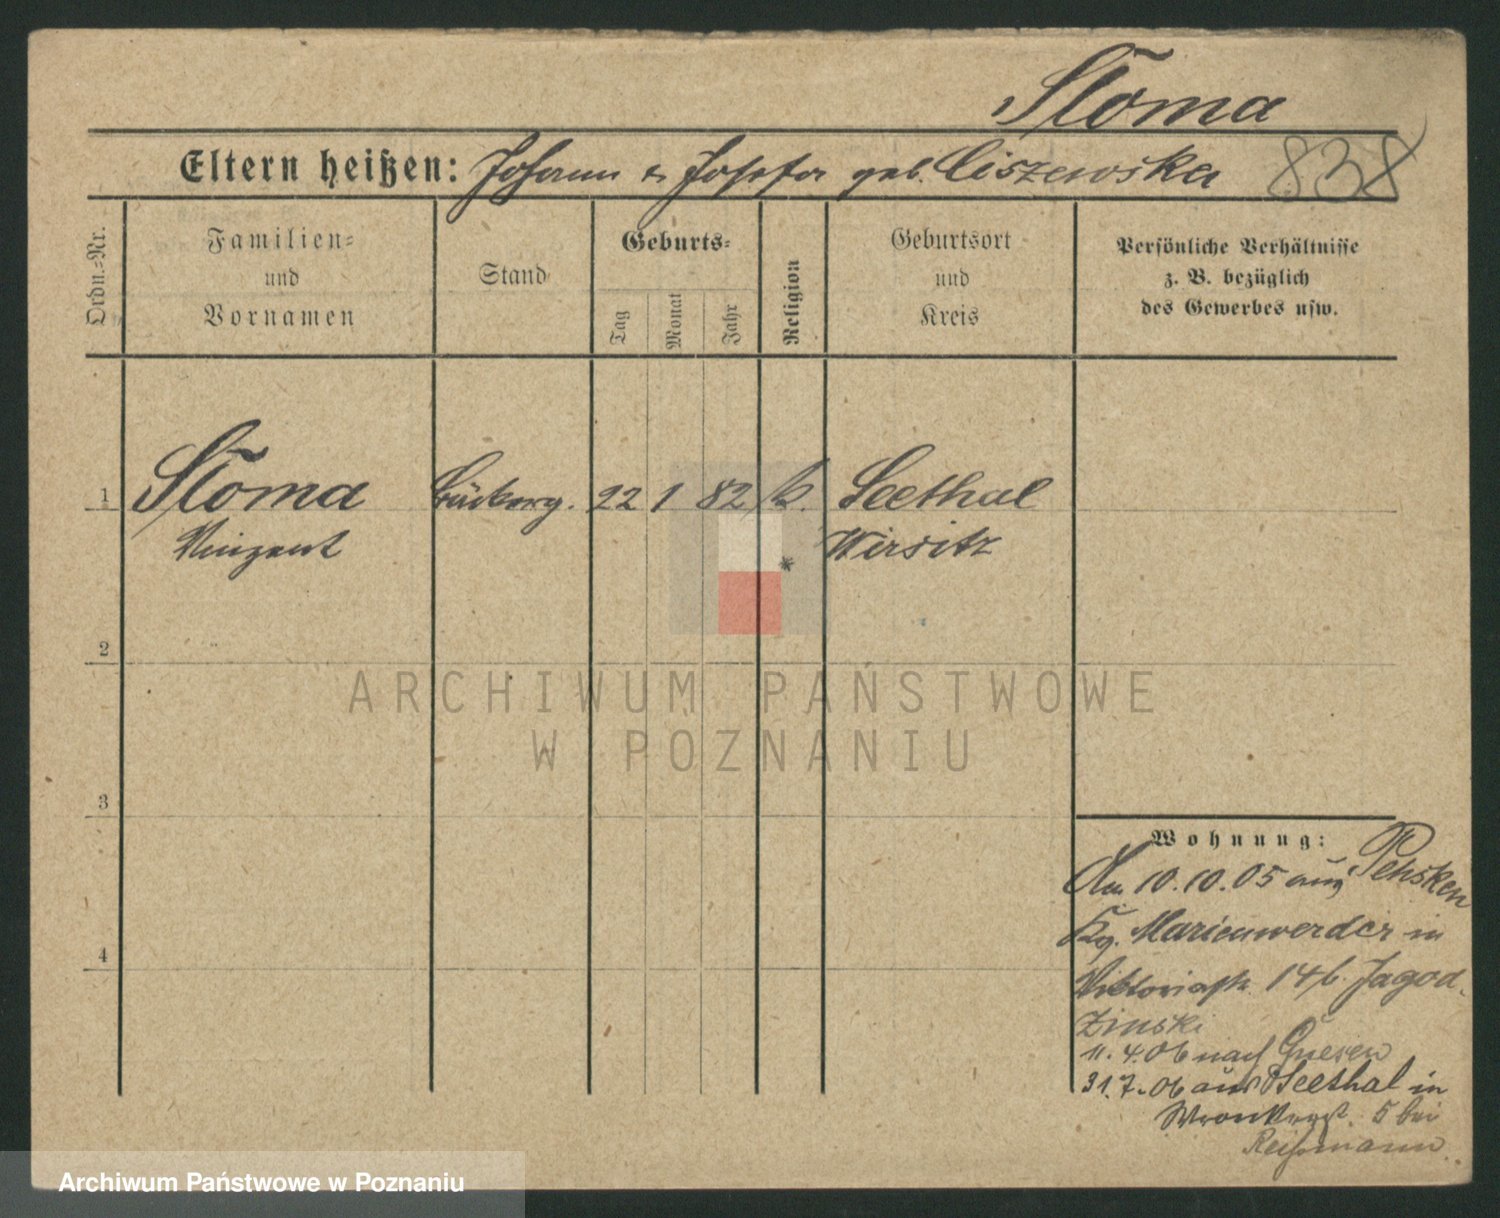 Stoma
Eltern heißen: Johann & Josefa geb. Ciszewska 838
Ordn.-Nr.
Familien-
und
Vornamen
Stand
Geburts-
Tag
Monat
Jahr
Religion
Geburtsort
und
Kreis
Persönliche Verhältnisse
z. B. bezüglich
des Gewerbes usw.
1 Stoma 22 1 82 k. Seethal
Vinzent Wirsitz
2
3
4
ARCHIWUM PAŃSTWOWE
W POZNANIU
Wohnung:
Am 10.10.05 aus Pehsken
Marienwerder in
Viktoriastr. 14 b. Jagod-
zinski
11.4.06 nach Gnesen
31.7.06 aus Seethal in
Wronkerst. 5 bei
Reißmann
Archiwum Państwowe w Poznaniu